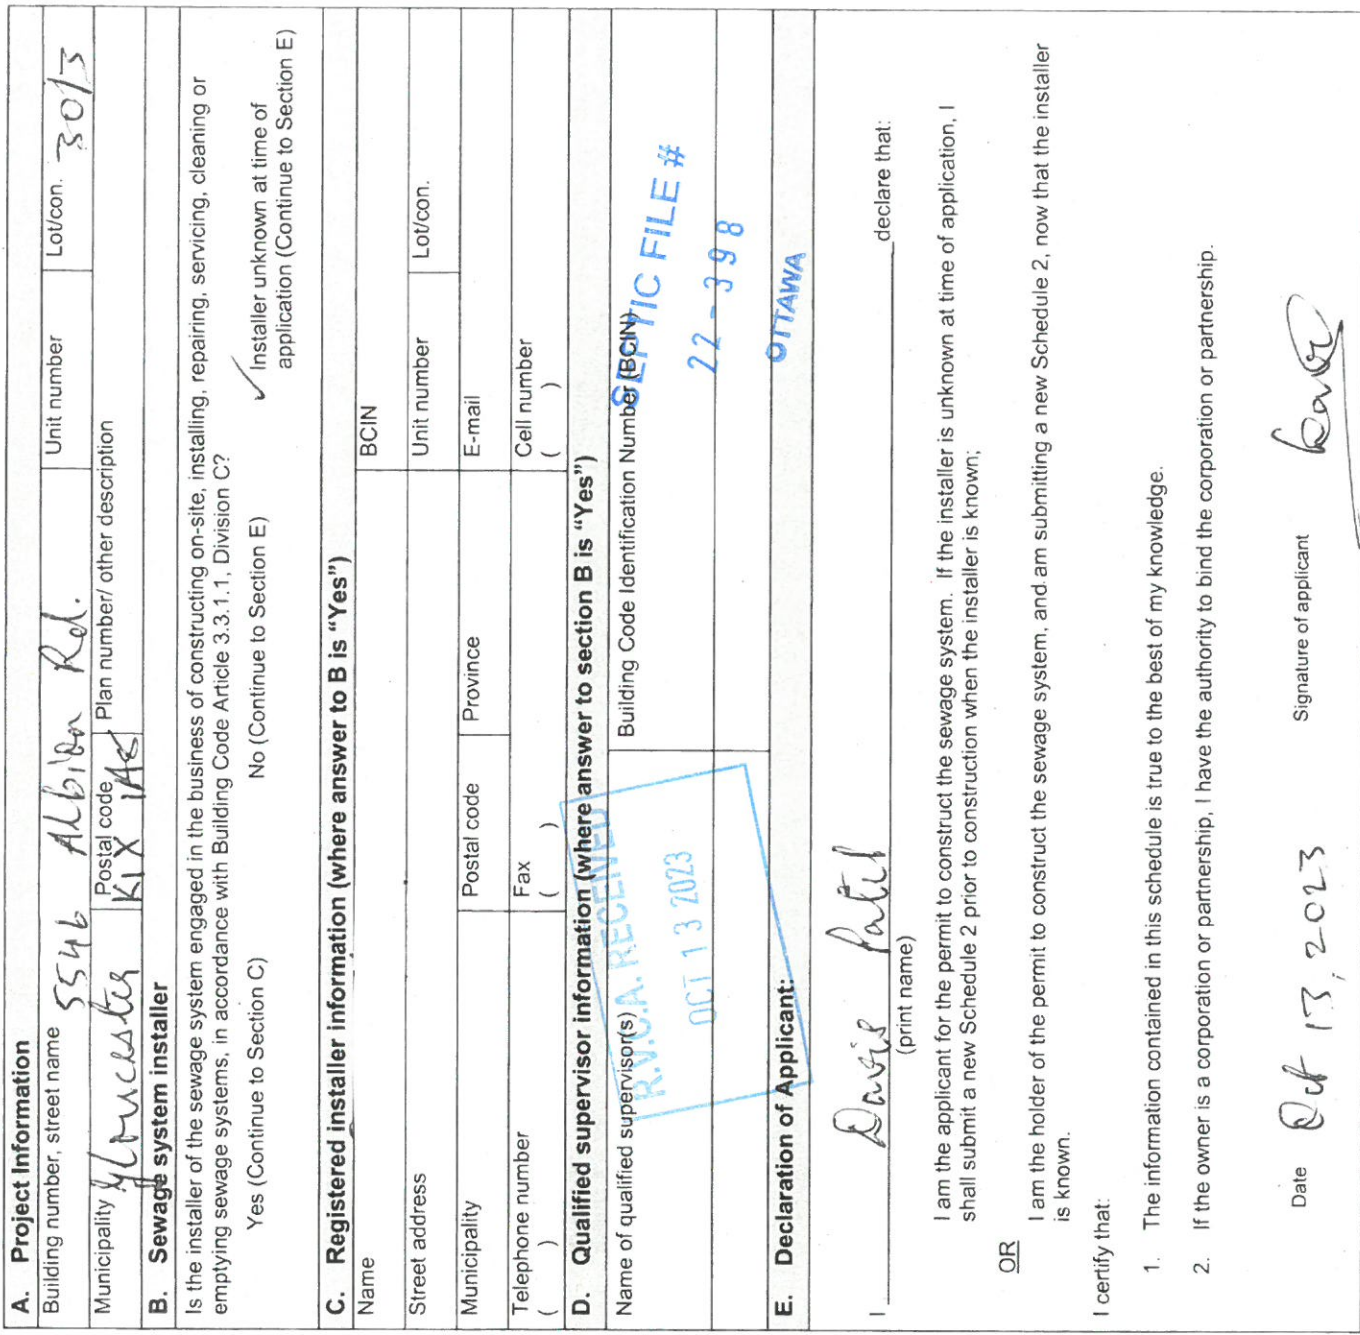 A. Project Information
Building number, street name 5546 Albion Rd.
Unit number
Lot/con. 30/3
Municipality Gloucester
Postal code K1X 1A8
Plan number/ other description
B. Sewage system installer
Is the installer of the sewage system engaged in the business of constructing on-site, installing, repairing, servicing, cleaning or
emptying sewage systems, in accordance with Building Code Article 3.3.1.1, Division C?
Yes (Continue to Section C)
No (Continue to Section E)
✓ Installer unknown at time of
application (Continue to Section E)
C. Registered installer information (where answer to B is “Yes”)
Name
BCIN
Street address
Unit number
Lot/con.
Municipality
Postal code
Province
E-mail
Telephone number
( )
Fax
( )
Cell number
( )
D. Qualified supervisor information (where answer to section B is “Yes”)
Name of qualified supervisor(s)
Building Code Identification Number (BCIN)
R.V.C.A. RECEIVED
OCT 13 2023
SEPTIC FILE #
22-398
OTTAWA
E. Declaration of Applicant:
I Davis Patil declare that:
(print name)
I am the applicant for the permit to construct the sewage system. If the installer is unknown at time of application, I
shall submit a new Schedule 2 prior to construction when the installer is known;
OR
I am the holder of the permit to construct the sewage system, and am submitting a new Schedule 2, now that the installer
is known.
I certify that:
1. The information contained in this schedule is true to the best of my knowledge.
2. If the owner is a corporation or partnership, I have the authority to bind the corporation or partnership.
Date Oct 13, 2023
Signature of applicant